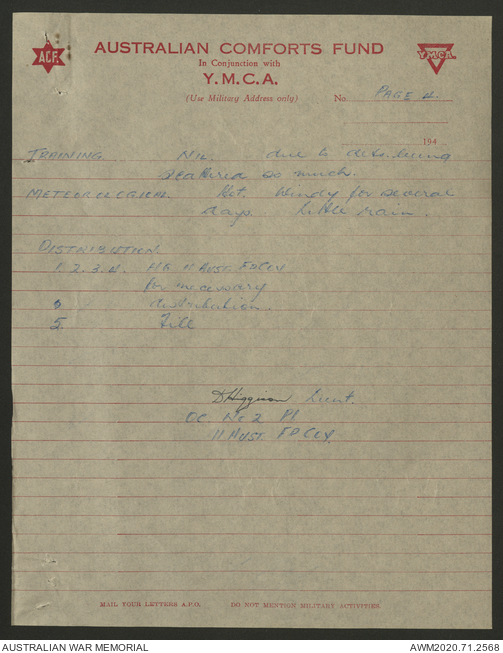 ACF
AUSTRALIAN COMFORTS FUND
In Conjunction with
Y.M.C.A.
Y.M.C.A.
(Use Military Address only) No. PAGE 4.
194
TRAINING. NIL. due to dets. being
scattered so much.
METEOROLOGICAL. Hot. Windy for several
days. Little rain.
DISTRIBUTION
1. 2. 3. 4. HQ 11 AUST. FD COY
for necessary
distribution.
5. File
DHiggison Lieut.
OC No 2 Pl
11 AUST. FD COY.
MAIL YOUR LETTERS A.P.O. DO NOT MENTION MILITARY ACTIVITIES
AUSTRALIAN WAR MEMORIAL AWM2020.71.2568